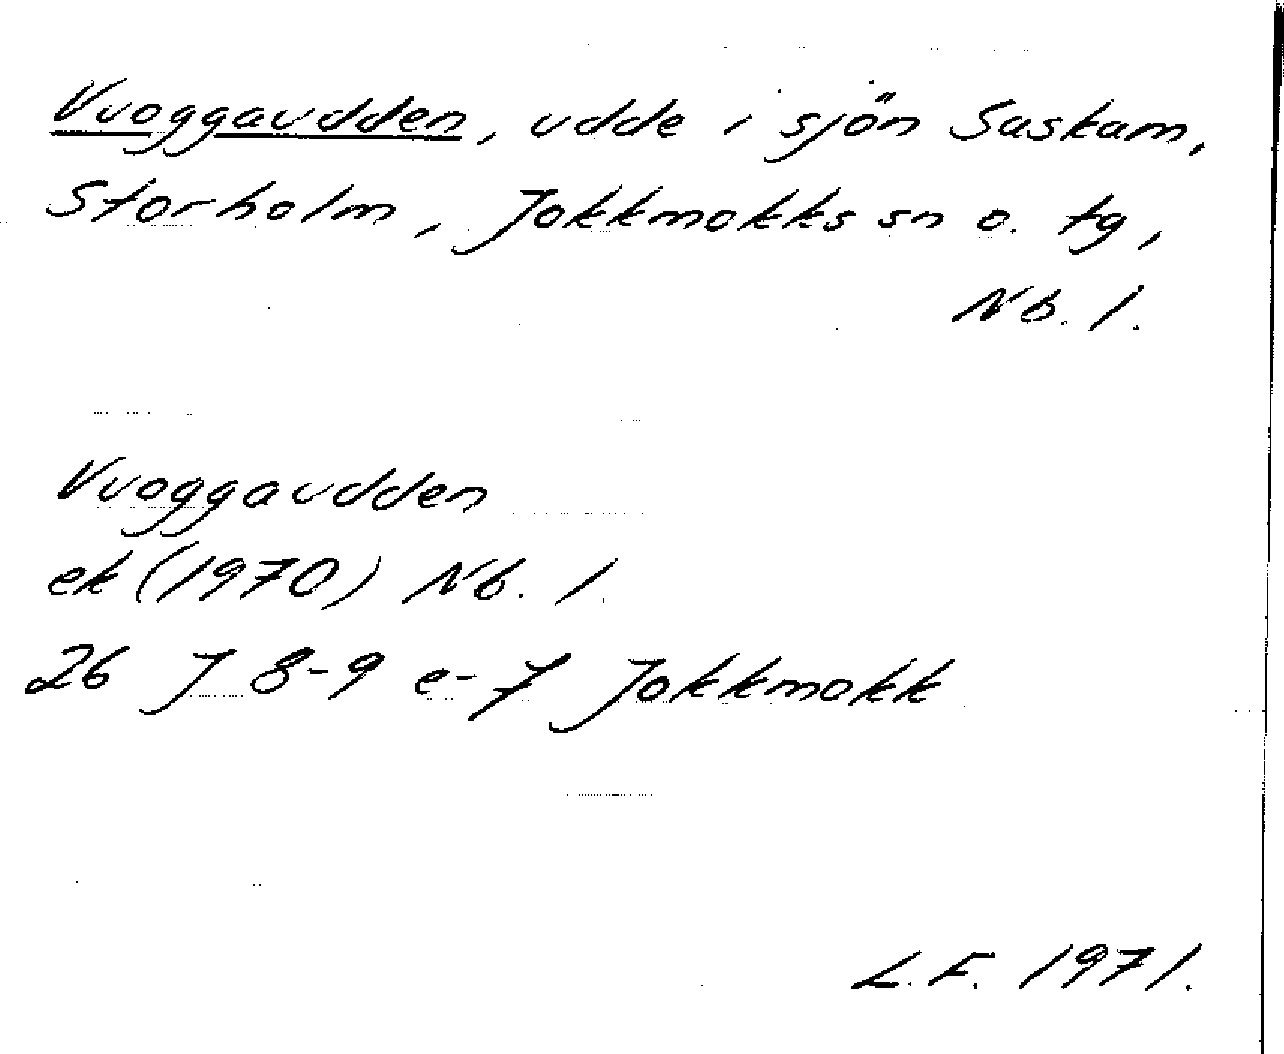 Vuoggaudden, udde i sjön Saskam,
Storholm, Jokkmokks sn o. tg,
Nb. l.
Vuoggaudden
ek (1970) Nb. l.
26 J 8-9 e-f Jokkmokk
L.F. 1971.